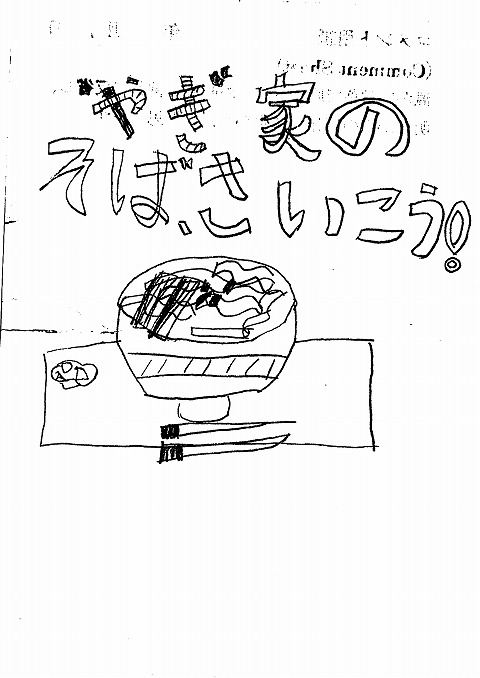 コメント用紙 年 月 日
(Comment Sheet)
やぎ家の
そばさいこう!